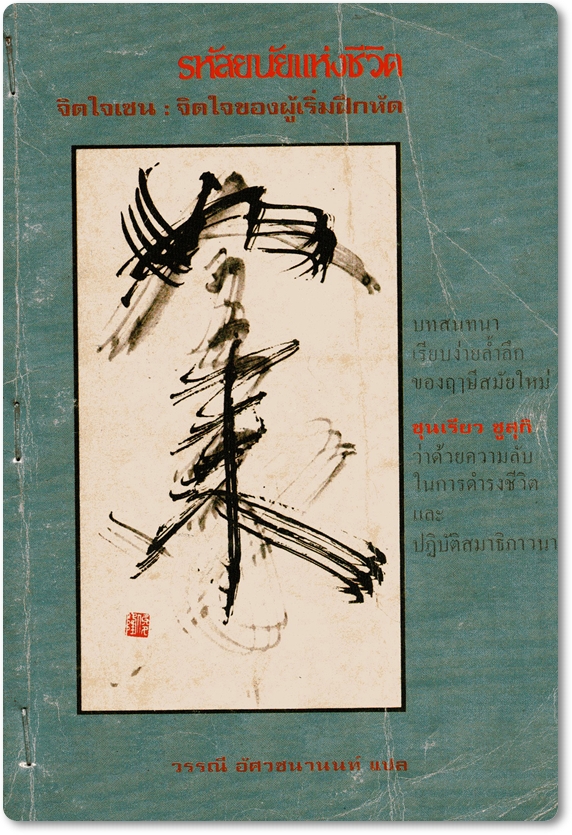 รหัสยนัยแห่งชีวิต
จิตใจเซน : จิตใจของผู้เริ่มฝึกหัด
บทสนทนา
เรียบง่ายล้ำลึก
ของฤๅษีสมัยใหม่
ชุนเรียว ซูสุกิ
ว่าด้วยความลับ
ในการดำรงชีวิต
และ
ปฏิบัติสมาธิภาวนา
วรรณี อัศวชนานนท์ แปล